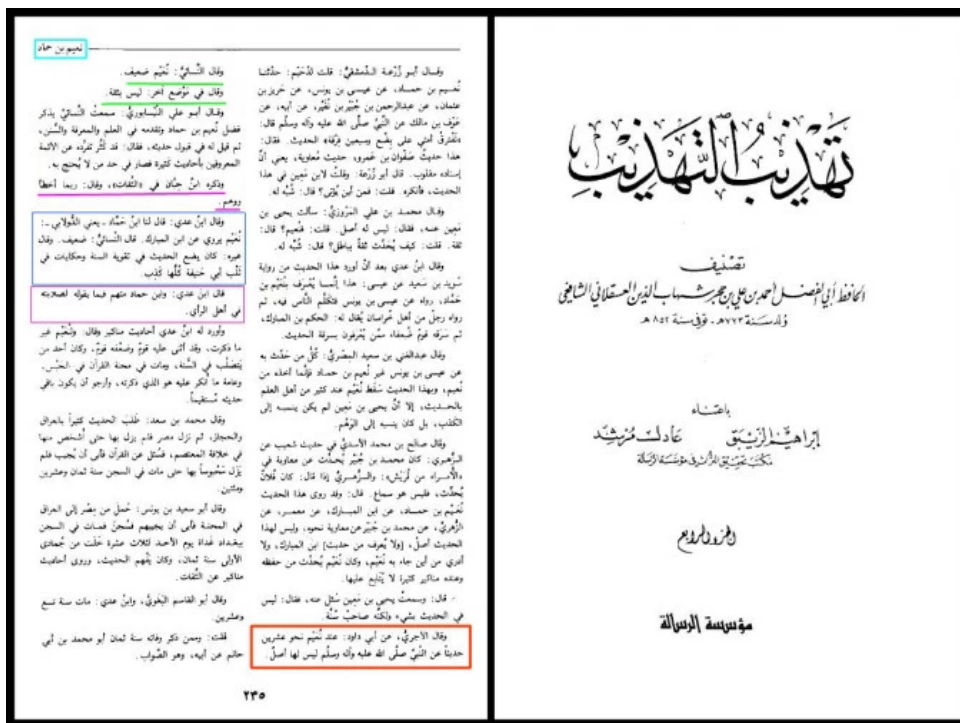 تهذيب التهذيب
تصنيف
الحافظ أبي الفضل أحمد بن علي بن حجر شهاب الدين العسقلاني الشافعي
ولد سنة ٧٧٣هـ - توفي سنة ٨٥٢ هـ
باعتناء
إبراهيم الزيبق عادل مرشد
مكتب تحقيق التراث في مؤسسة الرسالة
الجزء الرابع
مؤسسة الرسالة
نعيم بن حماد
وقال أبو زُرْعة الدِّمشقيُّ: قلت لدُحَيْم: حدَّثنا
نُعيم بن حماد، عن عيسى بن يونس، عن حَرِيز بن
عثمان، عن عبدالرحمن بن جُبَيْر بن نُفَيْر، عن أبيه، عن
عَوْف بن مالك عن النَّبيِّ صلَّى الله عليه وآله وسلَّم قال:
«تَفْترقُ أمتي على بِضْعٍ وسبعين فِرْقة» الحديث. فقال:
هذا حديث صَفْوان بن عَمرو، حديث مُعاوية، يعني أنَّ
إسناده مقلوب. قال أبو زُرْعة: وقلتُ لابن مَعِين في هذا
الحديث، فأنكره. قلت: فمن أين يُؤتى؟ قال: شُبِّه له.
وقال محمد بن علي المَرْوَزيُّ: سألت يحيى بن
مَعِين عنه، فقال: ليس له أصل. قلت: فنُعيم؟ قال:
ثقة. قلت: كيف يُحَدِّث ثقةٌ بباطل؟ قال: شُبِّه له.
وقال ابنُ عدي بعد أنْ أورد هذا الحديث من رواية
سُويد بن سعيد عن عيسى: هذا إنَّما يُعْرَف بنُعَيْم بن
حَمَّاد، رواه عن عيسى بن يونس فتكلَّم النَّاس فيه، ثم
رواه رجلٌ من أهل خُراسان يُقال له: الحكم بن المبارك،
ثم سَرَقه قومٌ ضُعفاء ممَّن يُعْرَفون بسرقة الحديث.
وقال عبدالغني بن سعيد المِصْريُّ: كُلُّ من حَدَّث به
عن عيسى بن يونس غير نُعيم بن حماد فإنَّما أخذه من
نُعيم، وبهذا الحديث سَقَط نُعَيْم عند كثير من أهل العلم
بالحديث، إلا أنَّ يحيى بن مَعين لم يكن ينسبه إلى
الكذب، بل كان ينسبه إلى الوَهْم.
وقال صالح بن محمد الأسديُّ في حديث شعيب عن
الزُّهري: كان محمد بن جُبَيْر يُحدِّث عن معاوية في
«الأُمراء من قُريش»: والزُّهريُّ إذا قال: كان فُلانٌ
يُحدِّث، فليس هو سماع. قال: وقد روى هذا الحديث
نُعَيْم بن حماد، عن ابن المبارك، عن معمر، عن
الزُّهريِّ، عن محمد بن جُبَيْر عن معاوية نحوه، وليس لهذا
الحديث أصلٌ، [ولا يُعرف من حديث] ابن المبارك، ولا
أدري من أين جاء به نُعَيْم، وكان نُعَيْم يُحدِّث من حفظه
وعنده مناكير كثيرة لا يُتابع عليها.
قال: وسمعتُ يحيى بن مَعِين سُئل عنه، فقال: ليس
في الحديث بشيء ولكنَّه صاحبُ سُنَّة.
وقال الآجريُّ، عن أبي داود: عند نُعَيْم نحو عشرين
حديثاً عن النَّبيِّ صلَّى الله عليه وآله وسلَّم ليس لها أصلٌ.
وقال النَّسائيُّ: نُعَيْم ضعيف.
وقال في مَوْضع آخر: ليس بثقة.
وقال أبو علي النَّيْسابوريُّ: سمعتُ النَّسائيَّ يذكر
فضل نُعيم بن حماد وتقدمه في العلم والمعرفة والسُّنن،
ثم قيل له في قبول حديثه، فقال: قد كَثُر تفرّده عن الأئمة
المعروفين بأحاديث كثيرة فصار في حد من لا يُحتج به.
وذكره ابنُ حِبَّان في «الثِّقات»، وقال: ربما أخطأ
ووهم.
وقال ابنُ عدي: قال لنا ابنُ حَمَّاد - يعني الدُّولابي -:
نُعَيْم يروي عن ابن المبارك. قال النَّسائيُّ: ضعيف. وقال
غيره: كان يضع الحديث في تقوية السنة وحكايات في
ثَلْب أبي حنيفة كُلُّها كَذِب.
قال ابنُ عدي: وابن حماد متهم فيما يقوله لصلابته
في أهل الرأي.
وأورد له ابنُ عدي أحاديث مناكير وقال: ولنُعَيْم غير
ما ذكرت، وقد أثنى عليه قومٌ وضعَّفه قومٌ، وكان أحد من
يَتَصلَّب في السُّنة، ومات في محنة القرآن في الحَبْس،
وعامة ما أُنكر عليه هو الذي ذكرته، وأرجو أن يكون باقي
حديثه مُستقيماً.
وقال محمد بن سعد: طَلَبَ الحديث كثيراً بالعراق
والحجاز، ثم نزل مصر فلم يزل بها حتى أُشخص منها
في خلافة المعتصم، فسُئل عن القرآن فأبى أن يُجيب فلم
يَزَل مَحْبُوساً بها حتى مات في السجن سنة ثمان وعشرين
ومئتين.
وقال أبو سعيد بن يونس: حُمل من مِصْر إلى العراق
في المحنة فأبى أن يجيبهم فسُجنَ فمات في السجن
ببغداد غَداة يوم الأحد لثلاث عشرة خَلَت من جُمادى
الأولى سنة ثمان، وكان يَفْهم الحديث، وروى أحاديث
مناكير عن الثِّقات.
وقال أبو القاسم البَغَويُّ، وابنُ عدي: مات سنة تسع
وعشرين.
قلت: وممن ذكر وفاته سنة ثمان أبو محمد بن أبي
حاتم عن أبيه، وهو الصَّواب.
٢٣٥